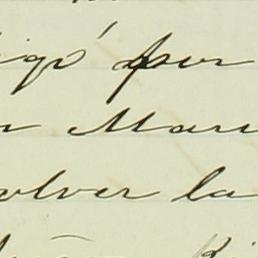 igó por
r Mari
olver la